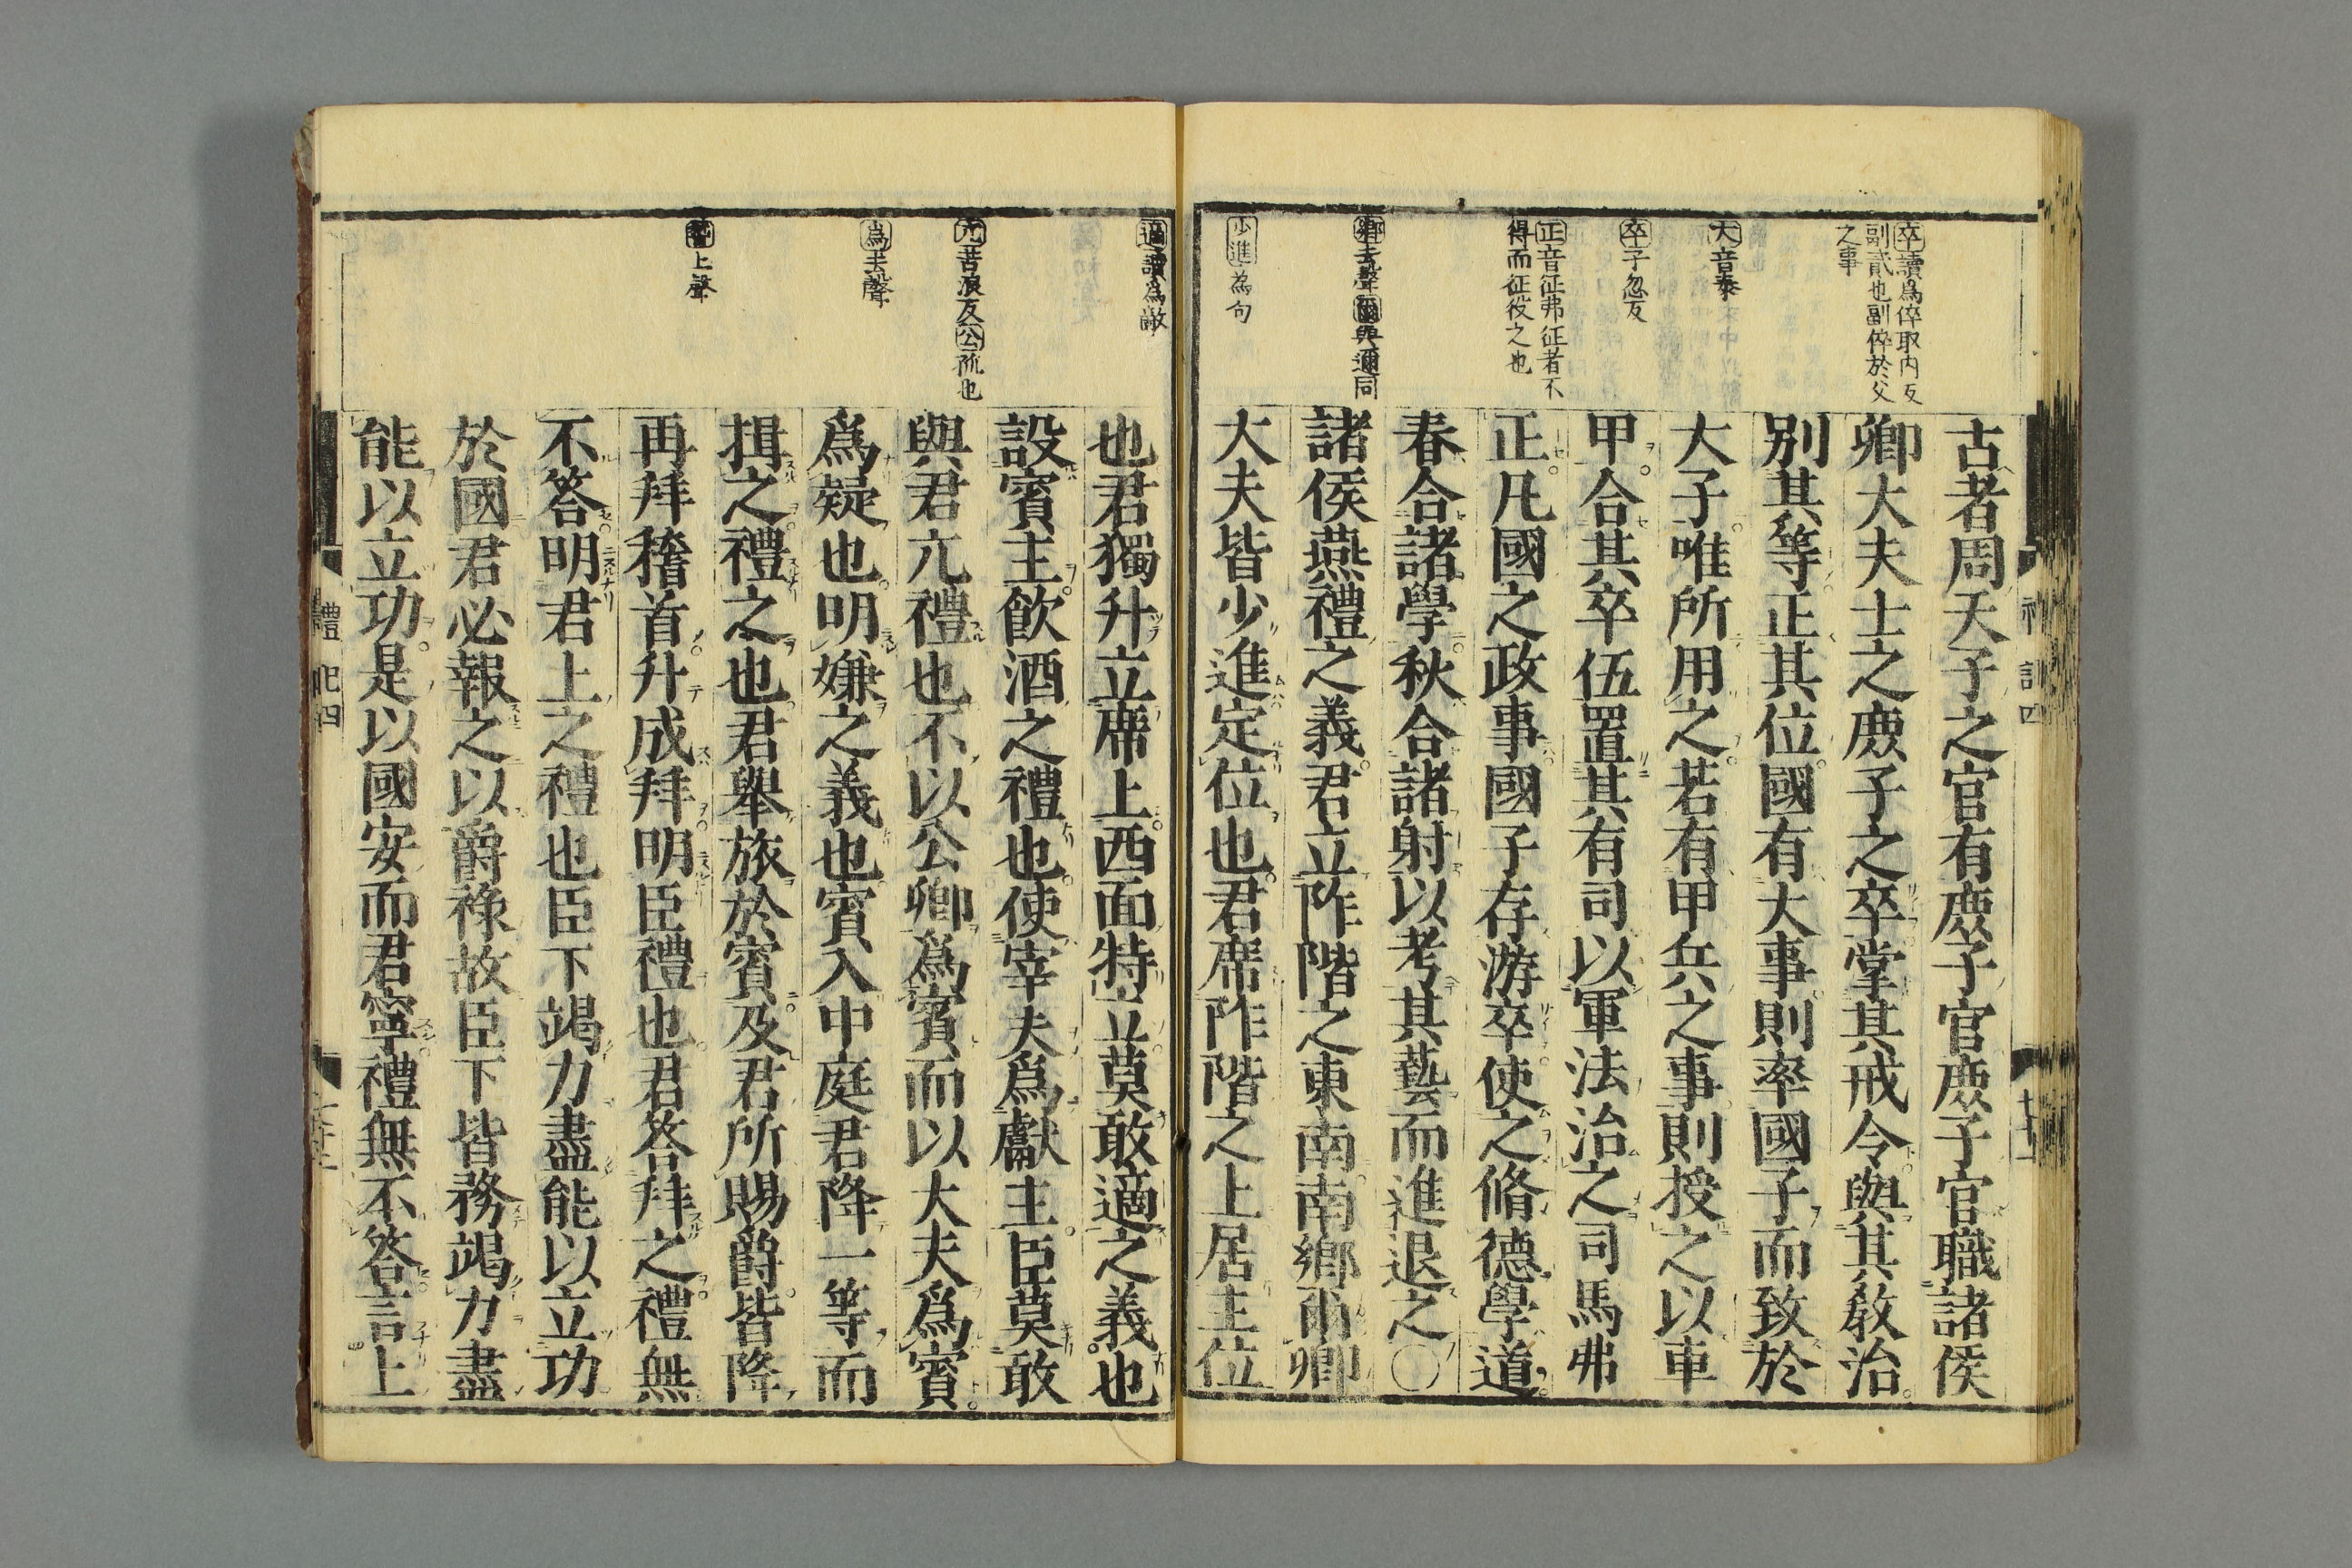 卒讀爲倅取内反
副貳也副倅於父
之事
大音泰
卒子忽反
正音征弗征者不
得而征役之也
鄉去聲爾與邇同
少進為句
古者周天子之官有庻子官庻子官職諸侯
卿大夫士之庻子之卒掌其戒令與其敎治
别其等正其位國有大事則率國子而致於
大子唯所用之若有甲兵之事則授之以車
甲合其卒伍置其有司以軍法治之司馬弗
正凡國之政事國子存游卒使之脩德學道
春合諸學秋合諸射以考其藝而進退之〇
諸侯燕禮之義君立阼階之東南南鄉爾卿
大夫皆少進定位也君席阼階之上居主位
適讀爲敵
亢苦浪反公孤也
爲去聲
稽上聲
也君獨升立席上西面特立莫敢適之義也
設賓主飮酒之禮也使宰夫爲獻主臣莫敢
與君亢禮也不以公卿爲賓而以大夫爲賓
爲疑也明嫌之義也賓入中庭君降一等而
揖之禮之也君舉旅於賓及君所賜爵皆降
再拜稽首升成拜明臣禮也君答拜之禮無
不答明君上之禮也臣下竭力盡能以立功
於國君必報之以爵祿故臣下皆務竭力盡
能以立功是以國安而君寧禮無不答言上
禮記四